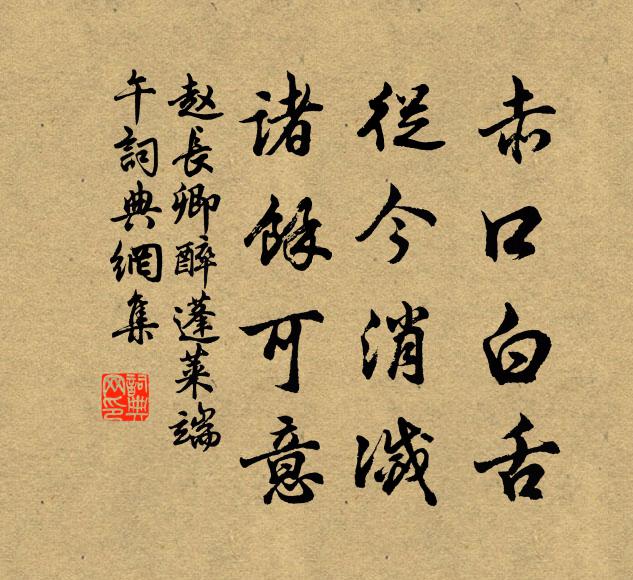 赤口白舌
從今消滅
諸餘可意
趙長卿醉蓬萊端
午詞典網集
詞典
网印